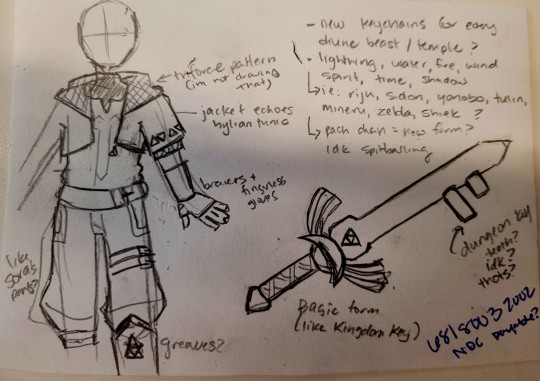 - new keychains for each
divine beast / temple?
• lightning, water, fire, wind
spirit, time, shadow
↳ ie: riju, sidon, yunobo, tulin,
mineru, zelda, shiek?
↳ each chain = new form?
idk spitballing
triforce pattern
(im not drawing
that)
jacket echoes
hylian tunic
bracers +
fingerless
gloves
like
sora's
pants?
greaves?
basic form
(like Kingdom Key)
dungeon key
teeth?
idk?
thots?
2002
NDC payable?